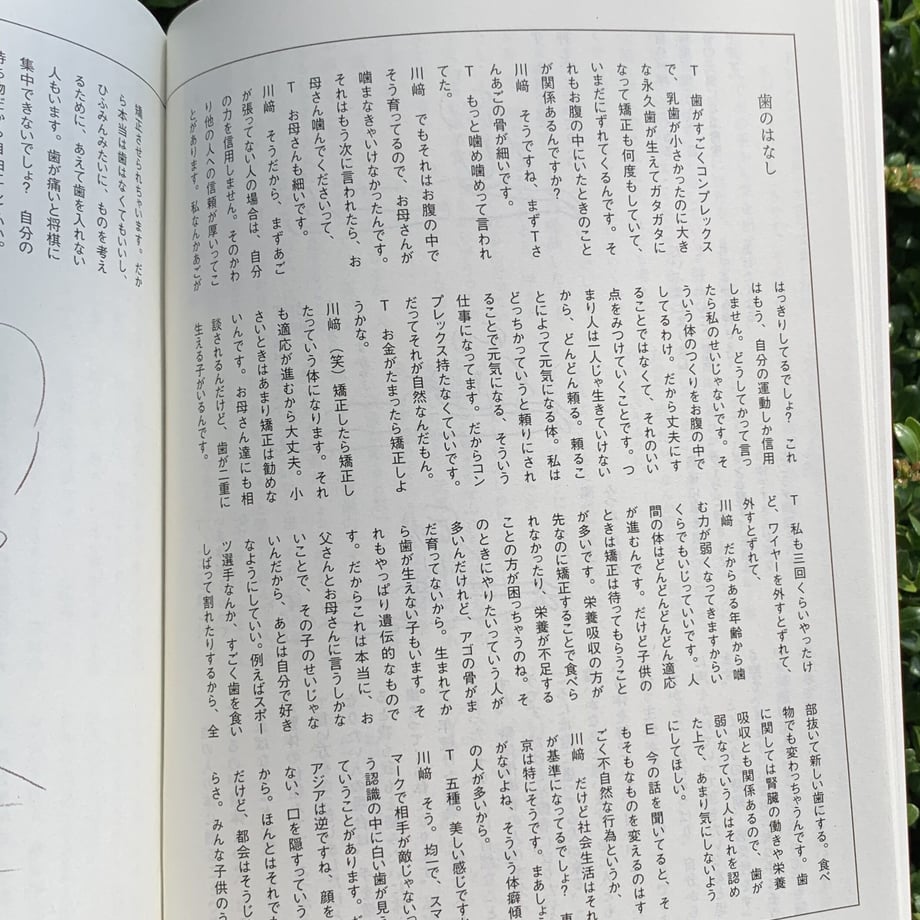 歯のはなし
T　歯がすごくコンプレックス
で、乳歯が小さかったのに大き
な永久歯が生えてガタガタに
なって矯正も何度もしていて、
いまだにずれてくるんです。そ
れもお腹の中にいたときのこと
が関係あるんですか？
川﨑　そうですね、まずTさ
んあごの骨が細いです。
T　もっと噛め噛めって言われ
てた。
川﨑　でもそれはお腹の中で
そう育ってるので、お母さんが
噛まなきゃいけなかったんです。
それはもう次に言われたら、お
母さん噛んでくださいって、
T　お母さんも細いです。
川﨑　そうだから、まずあご
が張ってない人の場合は、自分
の力を信用しません。そのかわ
り他の人への信頼が厚いってこ
とがあります。私なんかあごが
はっきりしてるでしょ？　これ
はもう、自分の運動しか信用
しません。どうしてかって言っ
たら私のせいじゃないです。そ
ういう体のつくりをお腹の中で
してるわけ。だから丈夫にす
ることではなくて、それのいい
点をみつけていくことです。つ
まり人は一人じゃ生きていけない
から、どんどん頼る。頼るこ
とによって元気になる体。私は
どっちかっていうと頼りにされ
ることで元気になる、そういう
仕事になってます。だからコン
プレックス持たなくていいです。
だってそれが自然なんだもん。
T　お金がたまったら矯正しよ
うかな。
川﨑　（笑）矯正したら矯正し
たっていう体になります。それ
も適応が進むから大丈夫。小
さいときはあまり矯正は勧めな
いんです。お母さん達にも相
談されるんだけど、歯が二重に
生える子がいるんです。
T　私も三回くらいやったけ
ど、ワイヤーを外すとずれて、
外すとずれて、
川﨑　だからある年齢から噛
む力が弱くなってきますからい
くらでもいじっていいです。人
間の体はどんどんどんどん適応
が進むんです。だけど子供の
ときは矯正は待ってもらうこと
が多いです。栄養吸収の方が
先なのに矯正することで食べら
れなかったり、栄養が不足する
ことの方が困っちゃうのね。そ
のときにやりたいっていう人が
多いんだけれど、アゴの骨がま
だ育ってないから。生まれてか
ら歯が生えない子もいます。そ
れもやっぱり遺伝的なもので
す。だからこれは本当に、お
父さんとお母さんに言うしかな
いことで、その子のせいじゃな
いんだから、あとは自分で好き
なようにしていい。例えばスポー
ツ選手なんか、すごく歯を食い
しばって割れたりするから、全
部抜いて新しい歯にする。食べ
物でも変わっちゃうんです。歯
に関しては腎臓の働きや栄養
吸収とも関係あるので、歯が
弱いなっていう人はそれを認め
た上で、あまり気にしないよう
にしてほしい。
E　今の話を聞いてると、そ
もそもなものを変えるのはす
ごく不自然な行為というか、
川﨑　だけど社会生活はそれ
が基準になってるでしょ？　東
京は特にそうです。まあしょ
がないよね、そういう体癖傾
の人が多いから。
T　五種。美しい感じです
川﨑　そう。均一で、スマ
マークで相手が敵じゃない
う認識の中に白い歯が見
ていうことがあります。
アジアは逆ですね、顔を
ない、口を隠すっていう
から。ほんとはそれで
だけど、都会はそうじ
らさ。みんな子供のう
矯正させられちゃいます。だか
ら本当は歯はなくてもいいし、
ひふみんみたいに、ものを考え
るために、あえて歯を入れない
人もいます。歯が痛いと将棋に
集中できないでしょ？　自分の